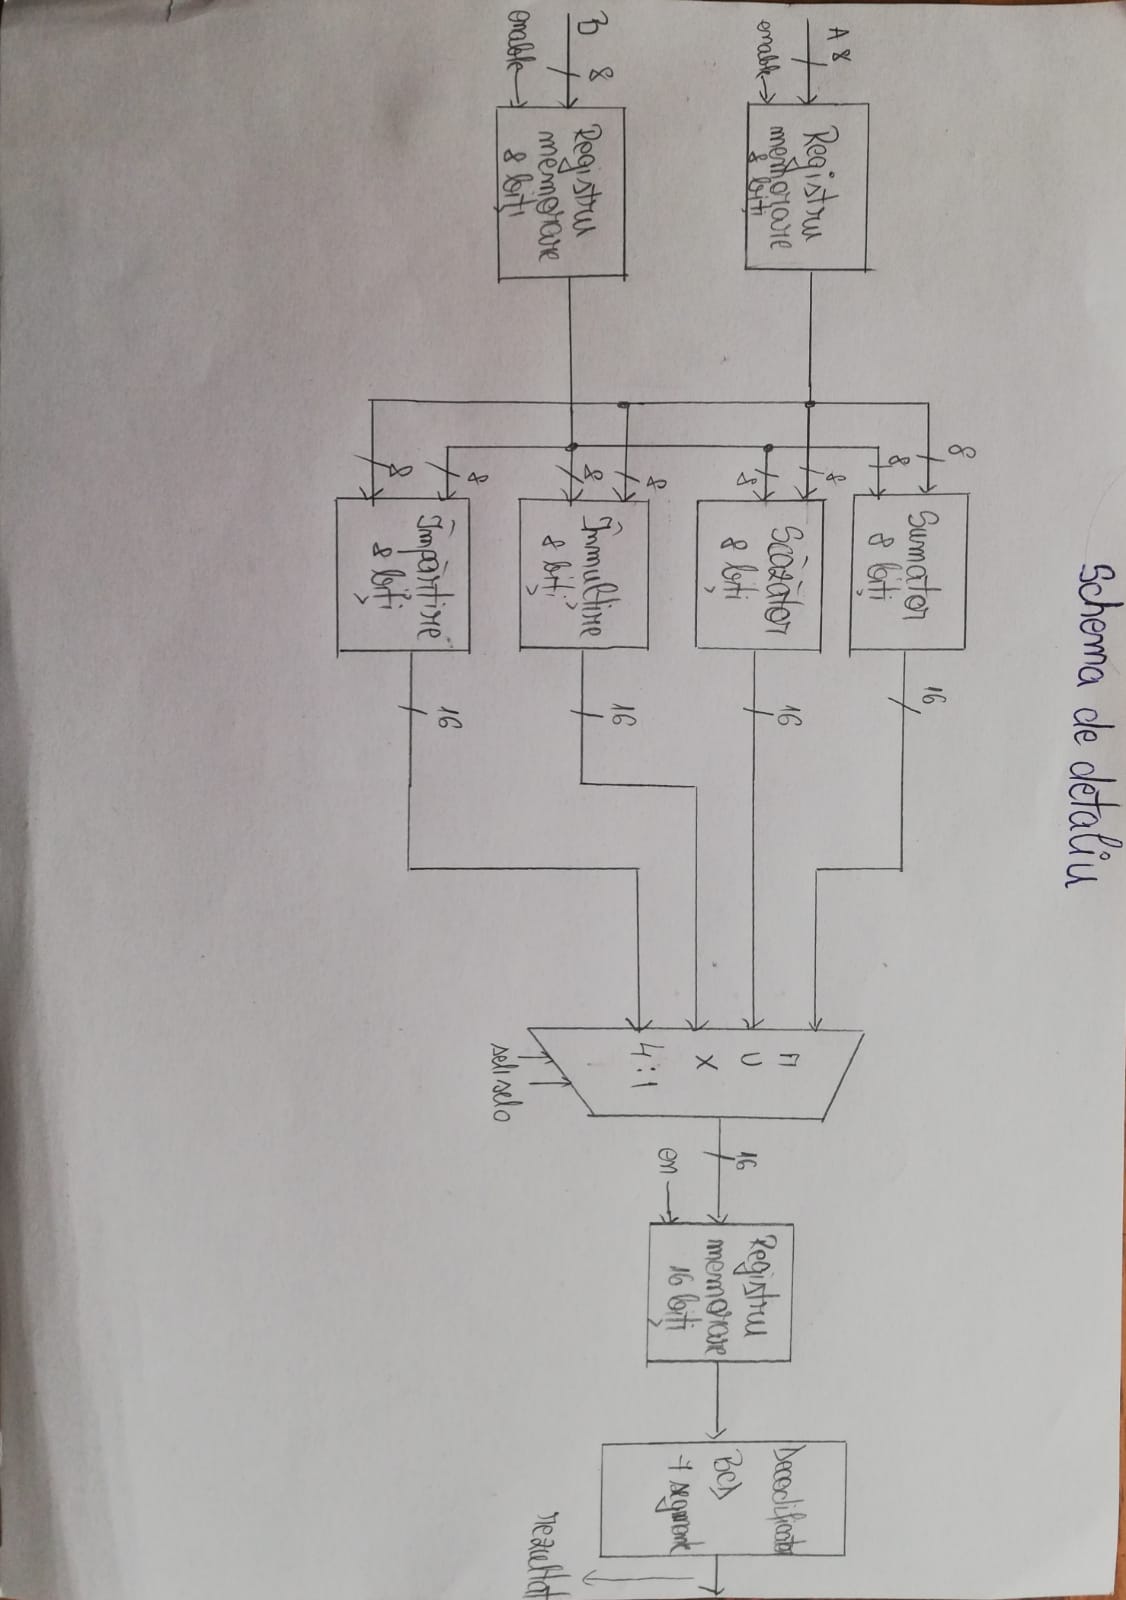 Schema de detaliu
A 8
enable
Registru
memorare
8 biți
B 8
enable
Registru
memorare
8 biți
8
8
Sumator
8 biți
16
8
8
Scăzător
8 biți
16
8
8
Înmulțire
8 biți
16
8
8
Împărțire
8 biți
16
M
U
X
4:1
sel1 sel0
16
en
Registru
memorare
16 biți
Decodificator
BCD
7 segmente
rezultat